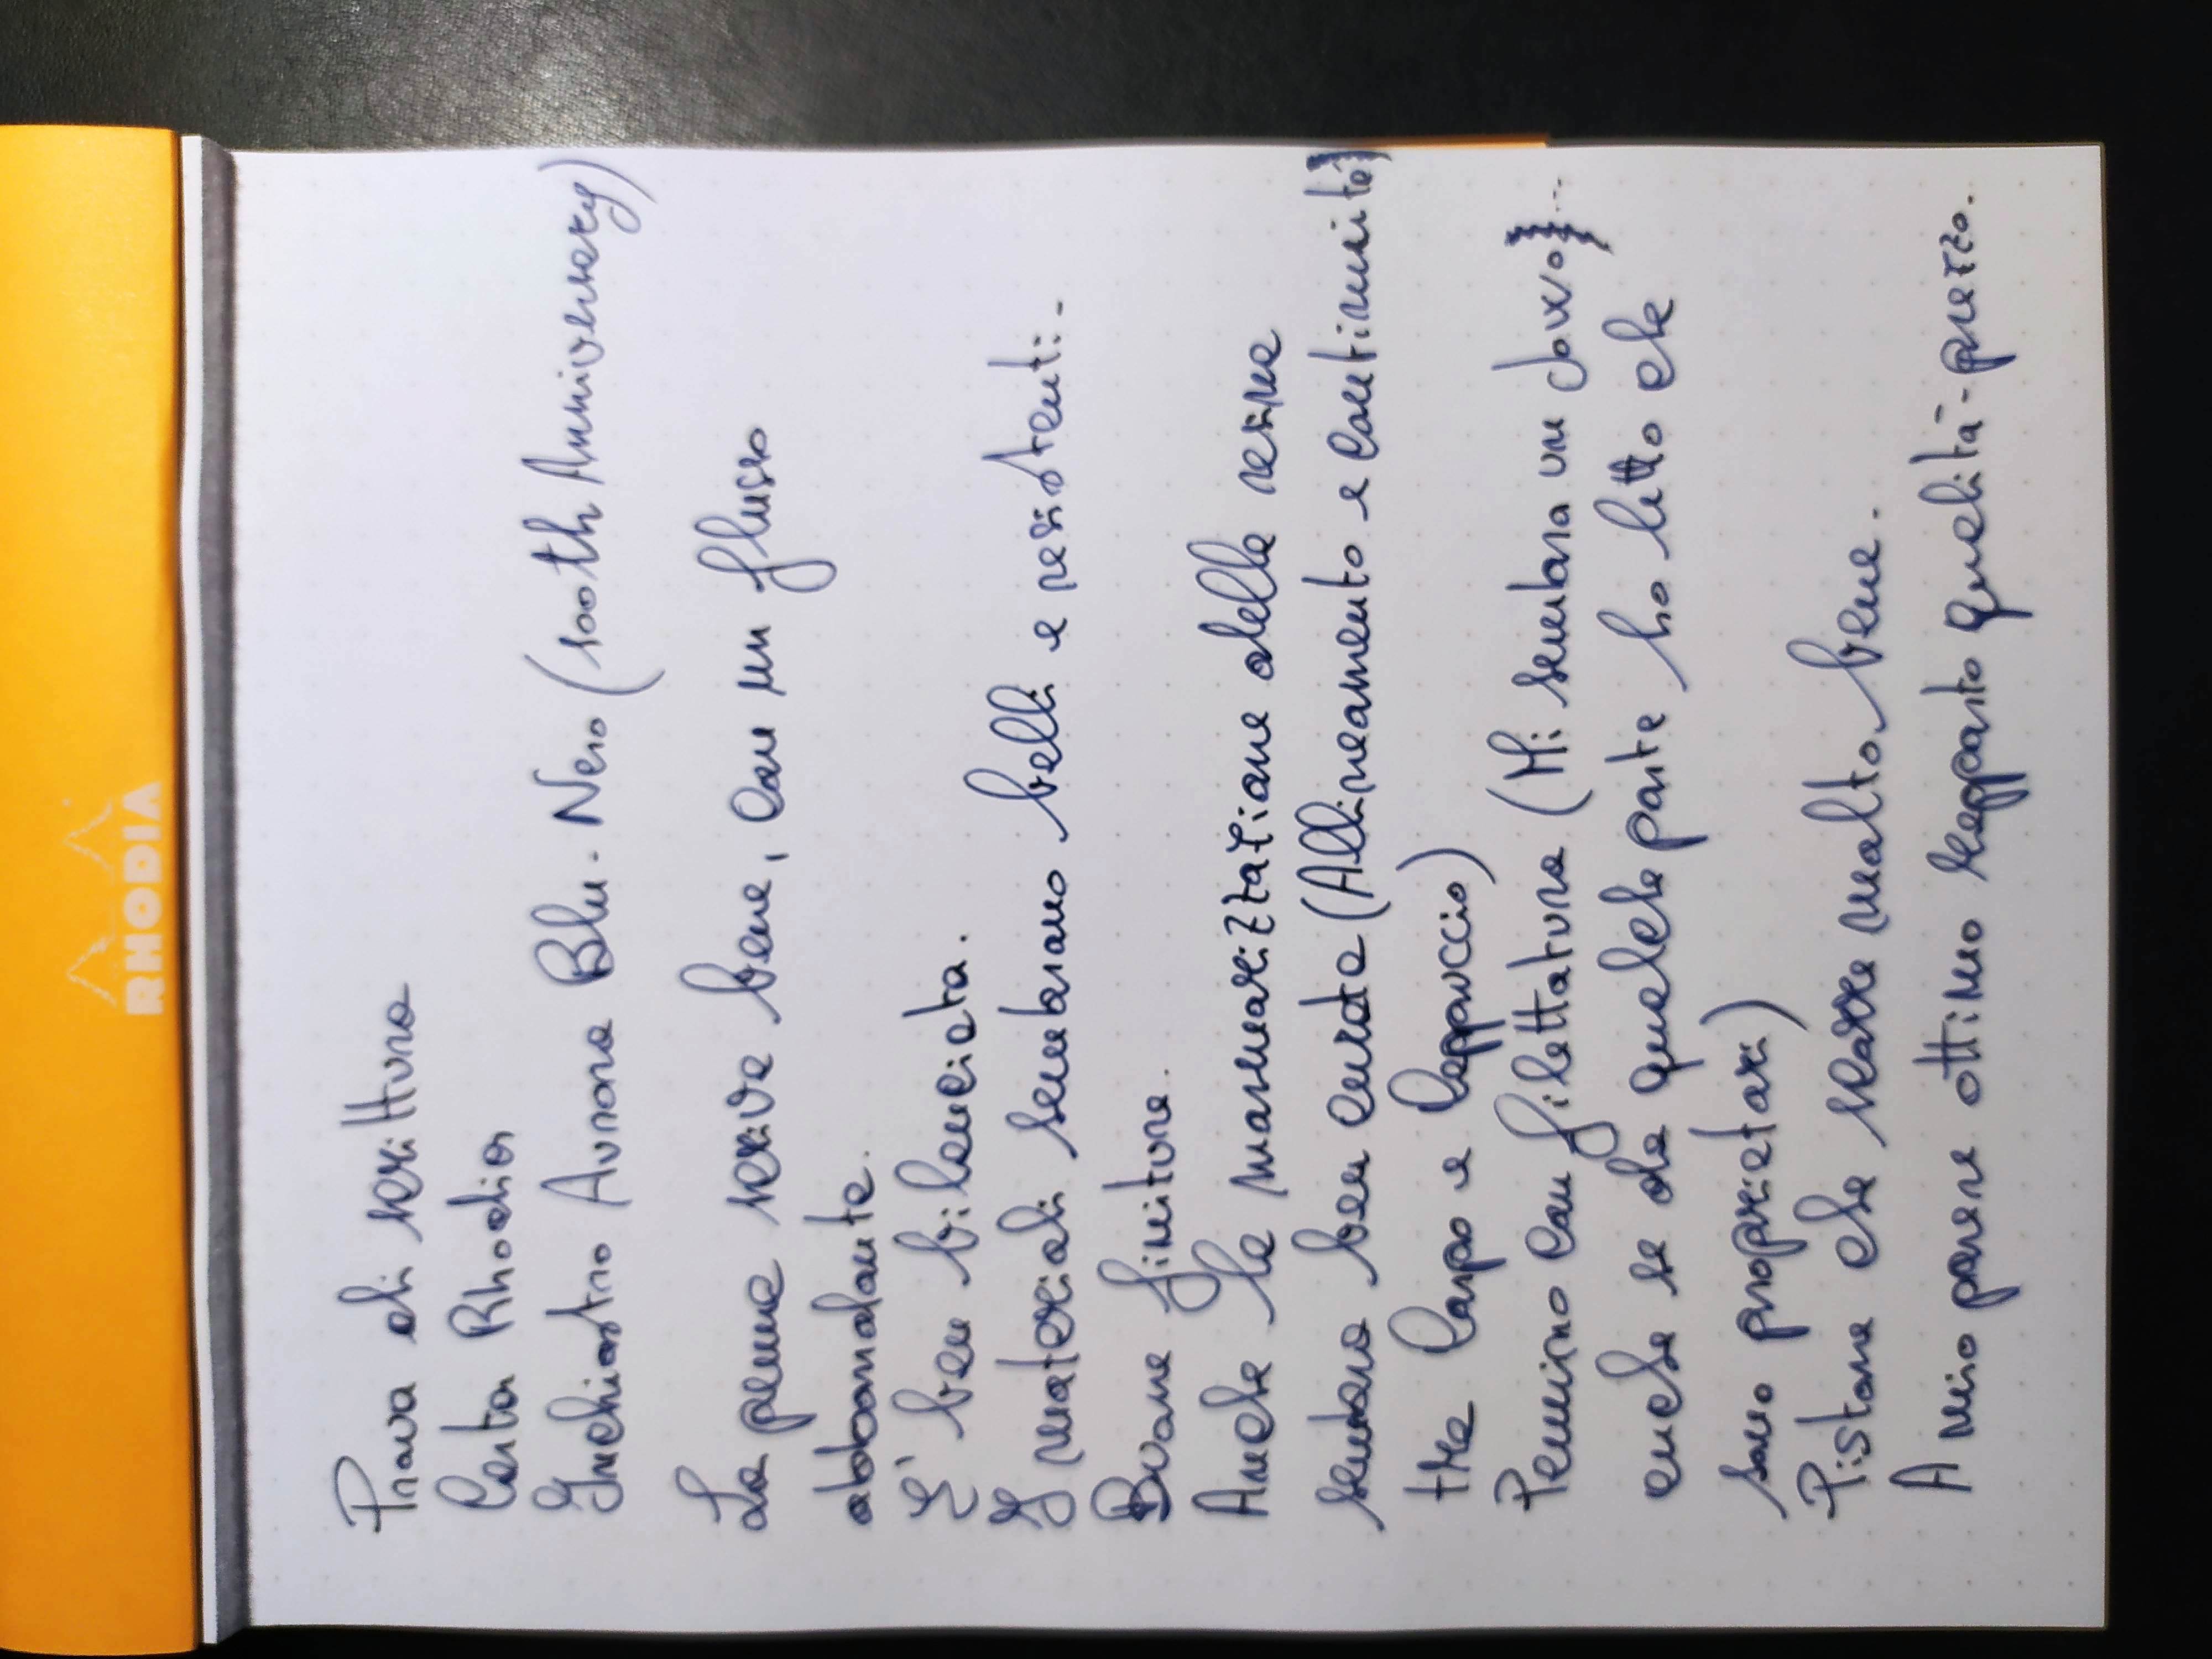 RHODIA
Prova di scrittura
Carta Rhodia
Inchiostro Aurora Blu-Nero (100th Anniversary)
La penna scrive bene, con un flusso
abbondante.
E' ben bilanciata.
I materiali sembrano belli e resistenti.
Buone finiture.
Anche la marmorizzazione della resina
sembra ben curata (Allineamento e continuità
tra corpo e cappuccio)
Pennino con filettatura (Mi sembra un Jowo)...
anche se da qualche parte ho letto che
sono proprietari)
Pistone che scorre molto bene.
A mio parere ottimo rapporto qualità-prezzo.